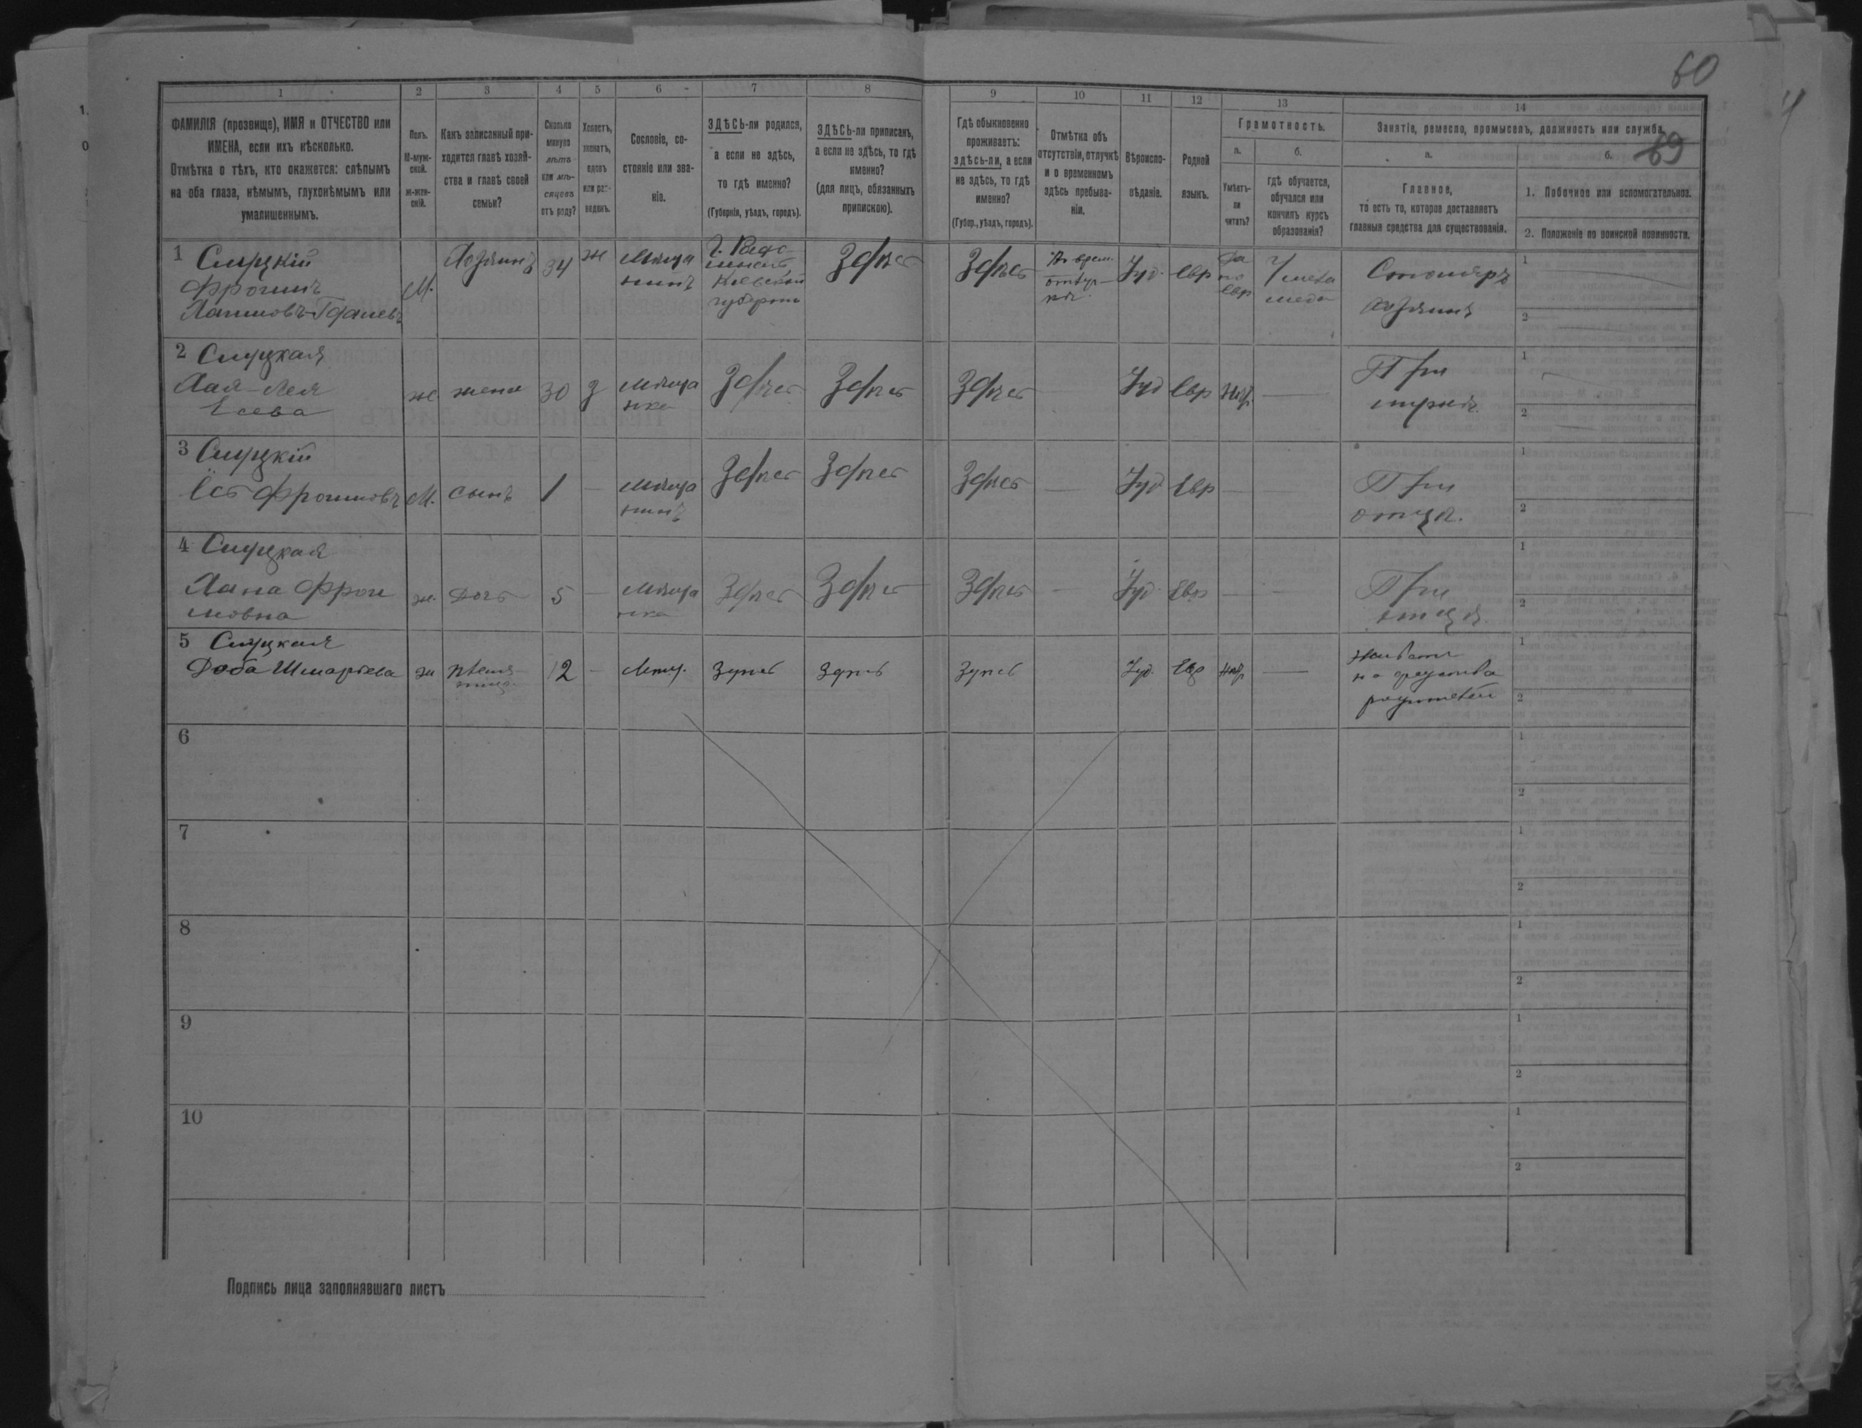 60
69
1 2 3 4 5 6 7 8 9 10 11 12 13 14
ФАМИЛІЯ (прозвище), ИМЯ и ОТЧЕСТВО или
ИМЕНА, если ихъ нѣсколько.
Отмѣтка о тѣхъ, кто окажется: слѣпымъ
на оба глаза, нѣмымъ, глухонѣмымъ или
умалишеннымъ.
Полъ.
М-муж-
ской.
ж-жен-
скій.
Какъ записанный при-
ходится главѣ хозяй-
ства и главѣ своей
семьи?
Сколько
минуло
лѣтъ
или мѣ-
сяцевъ
отъ роду?
Холостъ,
женатъ,
вдовъ
или раз-
веденъ.
Сословіе, со-
стояніе или зва-
ніе.
ЗДѢСЬ-ли родился,
а если не здѣсь,
то гдѣ именно?
(Губернія, уѣздъ, городъ).
ЗДѢСЬ-ли приписанъ,
а если не здѣсь, то гдѣ
именно?
(для лицъ, обязанныхъ
припискою).
Гдѣ обыкновенно
проживаетъ:
здѣсь-ли, а если
не здѣсь, то гдѣ
именно?
(Губер., уѣздъ, городъ).
Отмѣтка объ
отсутствіи, отлучкѣ
и о временномъ
здѣсь пребыва-
ніи.
Вѣроиспо-
вѣданіе.
Родной
языкъ.
Грамотность.
а.
Умѣетъ-
ли
читать?
б.
гдѣ обучается,
обучался или
кончилъ курсъ
образованія?
Занятіе, ремесло, промыселъ, должность или служба.
а.
Главное,
то есть то, которое доставляетъ
главныя средства для существованія.
б.
1. Побочное или вспомогательное.
2. Положеніе по воинской повинности.
1 Слуцкій
Фроимъ
М.
Хозяинъ
34
ж
Мѣща
нинъ
Кіевской
губерніи
Здѣсь
Здѣсь
Іуд.
Евр
да
по
евр
У мела
меда
Столяръ
хозяинъ
1
2
2 Слуцкая
Хая-Лея
Есева
ж
жена
30
з
мѣща
нка
Здѣсь
Здѣсь
Здѣсь
Іуд
Евр
При
мужѣ
1
2
3 Слуцкій
Фроимовъ
М.
сынъ
1
мѣща
нинъ
Здѣсь
Здѣсь
Здѣсь
Іуд
Евр
При
отцѣ.
1
2
4 Слуцкая
Хана Фрои
мовна
ж.
дочь
5
мѣща
нка
Здѣсь
Здѣсь
Здѣсь
Іуд.
Евр
При
отцѣ.
1
2
5 Слуцкая
ж
племя
12
Здѣсь
Здѣсь
Здѣсь
Іуд.
Евр
на средства
родителей
1
2
6
1
2
7
1
2
8
1
2
9
1
2
10
1
2
Подпись лица заполнявшаго листъ